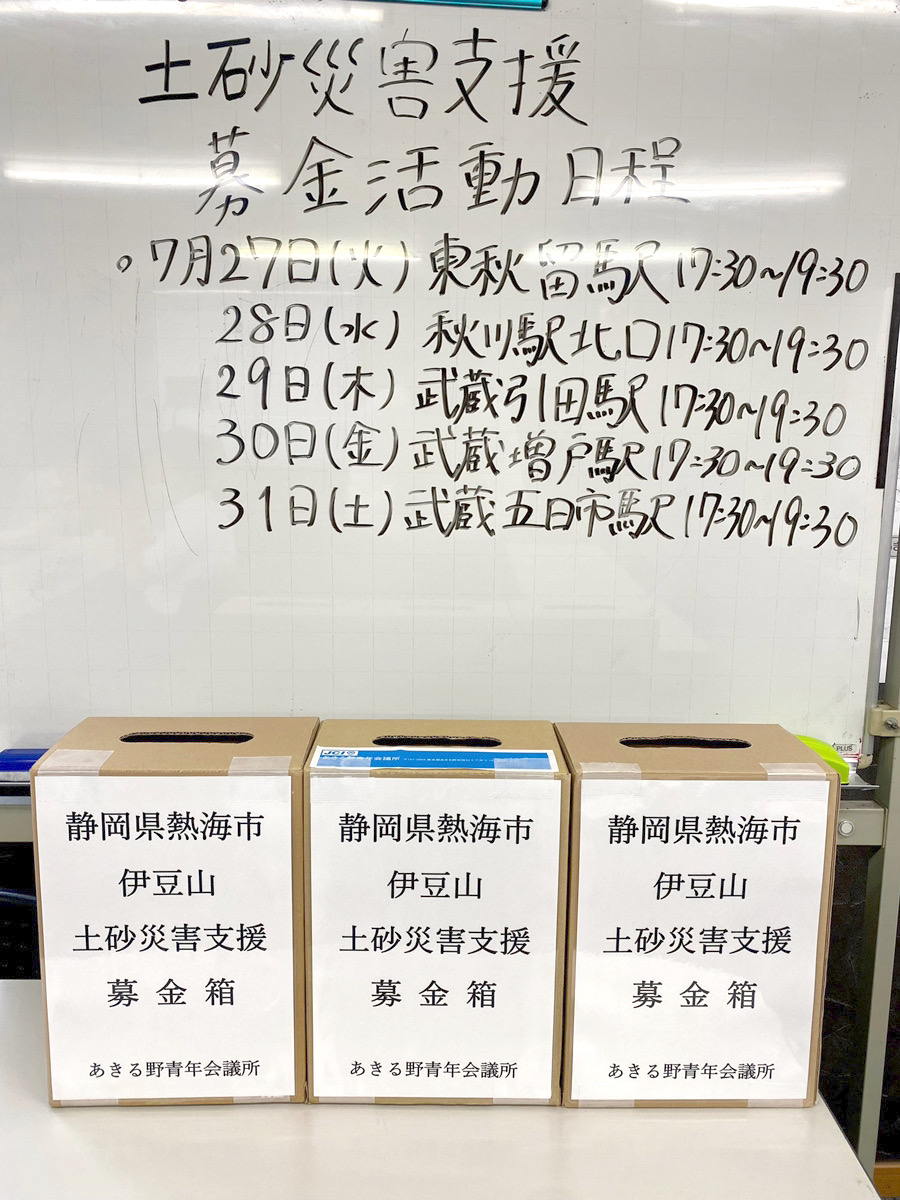 土砂災害支援
募金活動日程
。7月27日(火) 東秋留駅 17:30~19:30
28日(水) 秋川駅北口 17:30~19:30
29日(木) 武蔵引田駅 17:30~19:30
30日(金) 武蔵増戸駅 17:30~19:30
31日(土) 武蔵五日市駅 17:30~19:30
PLUS
JCI
会議所
静岡県熱海市
伊豆山
土砂災害支援
募金箱
あきる野青年会議所
静岡県熱海市
伊豆山
土砂災害支援
募金箱
あきる野青年会議所
静岡県熱海市
伊豆山
土砂災害支援
募金箱
あきる野青年会議所